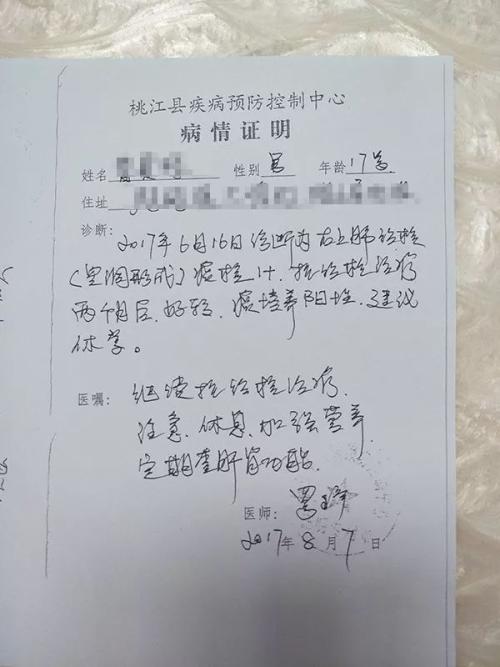 桃江县疾病预防控制中心
病情证明
姓名 性别 男 年龄 17岁
住址
诊断: 2017年6月16日诊断为右上肺结核
(空洞形成) 痰检 抗结核治疗
两个月后,好转,痰培养阳性,建议
休学。
医嘱: 继续抗结核治疗,
注意休息,加强营养,
定期查肝肾功能。
医师:
2017年8月7日